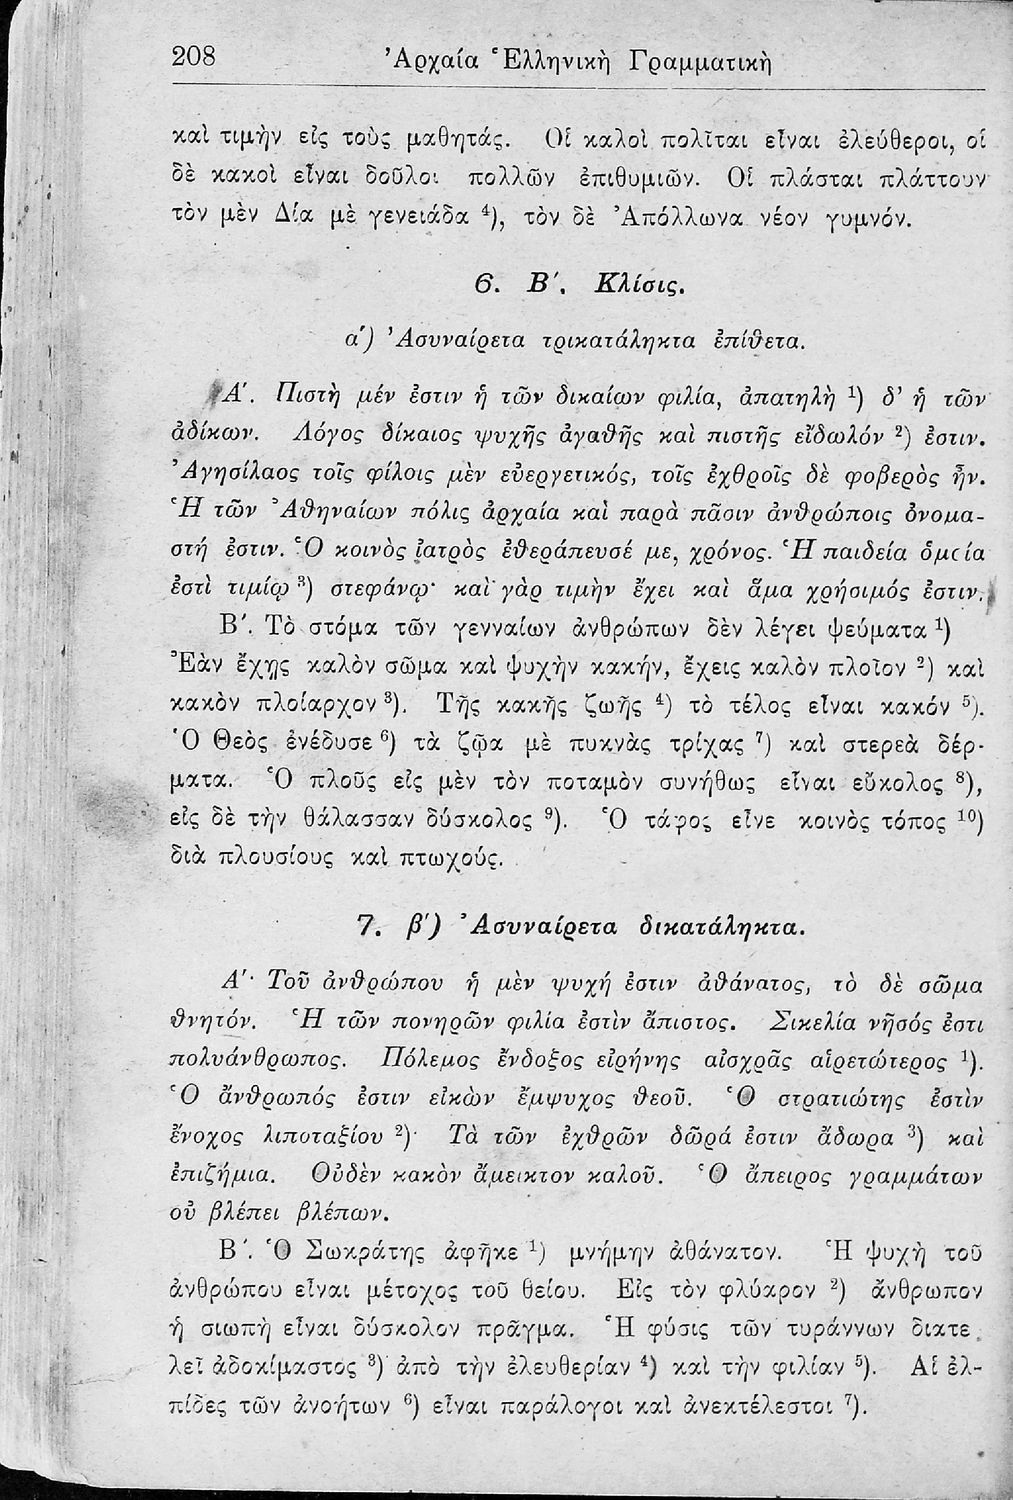 208 Ἀρχαία Ἑλληνικὴ Γραμματικὴ
καὶ τιμὴν εἰς τοὺς μαθητάς. Οἱ καλοὶ πολῖται εἶναι ἐλεύθεροι, οἱ
δὲ κακοὶ εἶναι δοῦλοι πολλῶν ἐπιθυμιῶν. Οἱ πλάσται πλάττουν
τὸν μὲν Δία μὲ γενειάδα ⁴), τὸν δὲ Ἀπόλλωνα νέον γυμνόν.
6. Β΄. Κλίσις.
α΄) Ἀσυναίρετα τρικατάληκτα ἐπίθετα.
Α΄. Πιστὴ μέν ἐστιν ἡ τῶν δικαίων φιλία, ἀπατηλὴ ¹) δ’ ἡ τῶν
ἀδίκων. Λόγος δίκαιος ψυχῆς ἀγαθῆς καὶ πιστῆς εἴδωλόν ²) ἐστιν.
Ἀγησίλαος τοῖς φίλοις μὲν εὐεργετικός, τοῖς ἐχθροῖς δὲ φοβερὸς ἦν.
Ἡ τῶν Ἀθηναίων πόλις ἀρχαία καὶ παρὰ πᾶσιν ἀνθρώποις ὀνομα-
στή ἐστιν. Ὁ κοινὸς ἰατρὸς ἐθεράπευσέ με, χρόνος. Ἡ παιδεία ὁμοία
ἐστὶ τιμίῳ ³) στεφάνῳ· καὶ γὰρ τιμὴν ἔχει καὶ ἅμα χρήσιμός ἐστιν.
Β΄. Τὸ στόμα τῶν γενναίων ἀνθρώπων δὲν λέγει ψεύματα ¹)
Ἐὰν ἔχῃς καλὸν σῶμα καὶ ψυχὴν κακήν, ἔχεις καλὸν πλοῖον ²) καὶ
κακὸν πλοίαρχον ³). Τῆς κακῆς ζωῆς ⁴) τὸ τέλος εἶναι κακόν ⁵).
Ὁ Θεὸς ἐνέδυσε ⁶) τὰ ζῷα μὲ πυκνὰς τρίχας ⁷) καὶ στερεὰ δέρ-
ματα. Ὁ πλοῦς εἰς μὲν τὸν ποταμὸν συνήθως εἶναι εὔκολος ⁸),
εἰς δὲ τὴν θάλασσαν δύσκολος ⁹). Ὁ τάφος εἶνε κοινὸς τόπος ¹⁰)
διὰ πλουσίους καὶ πτωχούς.
7. β΄) Ἀσυναίρετα δικατάληκτα.
Α΄· Τοῦ ἀνθρώπου ἡ μὲν ψυχή ἐστιν ἀθάνατος, τὸ δὲ σῶμα
θνητόν. Ἡ τῶν πονηρῶν φιλία ἐστὶν ἄπιστος. Σικελία νῆσός ἐστι
πολυάνθρωπος. Πόλεμος ἔνδοξος εἰρήνης αἰσχρᾶς αἱρετώτερος ¹).
Ὁ ἄνθρωπός ἐστιν εἰκὼν ἔμψυχος θεοῦ. Ὁ στρατιώτης ἐστὶν
ἔνοχος λιποταξίου ²)· Τὰ τῶν ἐχθρῶν δῶρά ἐστιν ἄδωρα ³) καὶ
ἐπιζήμια. Οὐδὲν κακὸν ἄμεικτον καλοῦ. Ὁ ἄπειρος γραμμάτων
οὐ βλέπει βλέπων.
Β΄. Ὁ Σωκράτης ἀφῆκε ¹) μνήμην ἀθάνατον. Ἡ ψυχὴ τοῦ
ἀνθρώπου εἶναι μέτοχος τοῦ θείου. Εἰς τὸν φλύαρον ²) ἄνθρωπον
ἡ σιωπὴ εἶναι δύσκολον πρᾶγμα. Ἡ φύσις τῶν τυράννων διατε
λεῖ ἀδοκίμαστος ³) ἀπὸ τὴν ἐλευθερίαν ⁴) καὶ τὴν φιλίαν ⁵). Αἱ ἐλ-
πίδες τῶν ἀνοήτων ⁶) εἶναι παράλογοι καὶ ἀνεκτέλεστοι ⁷).